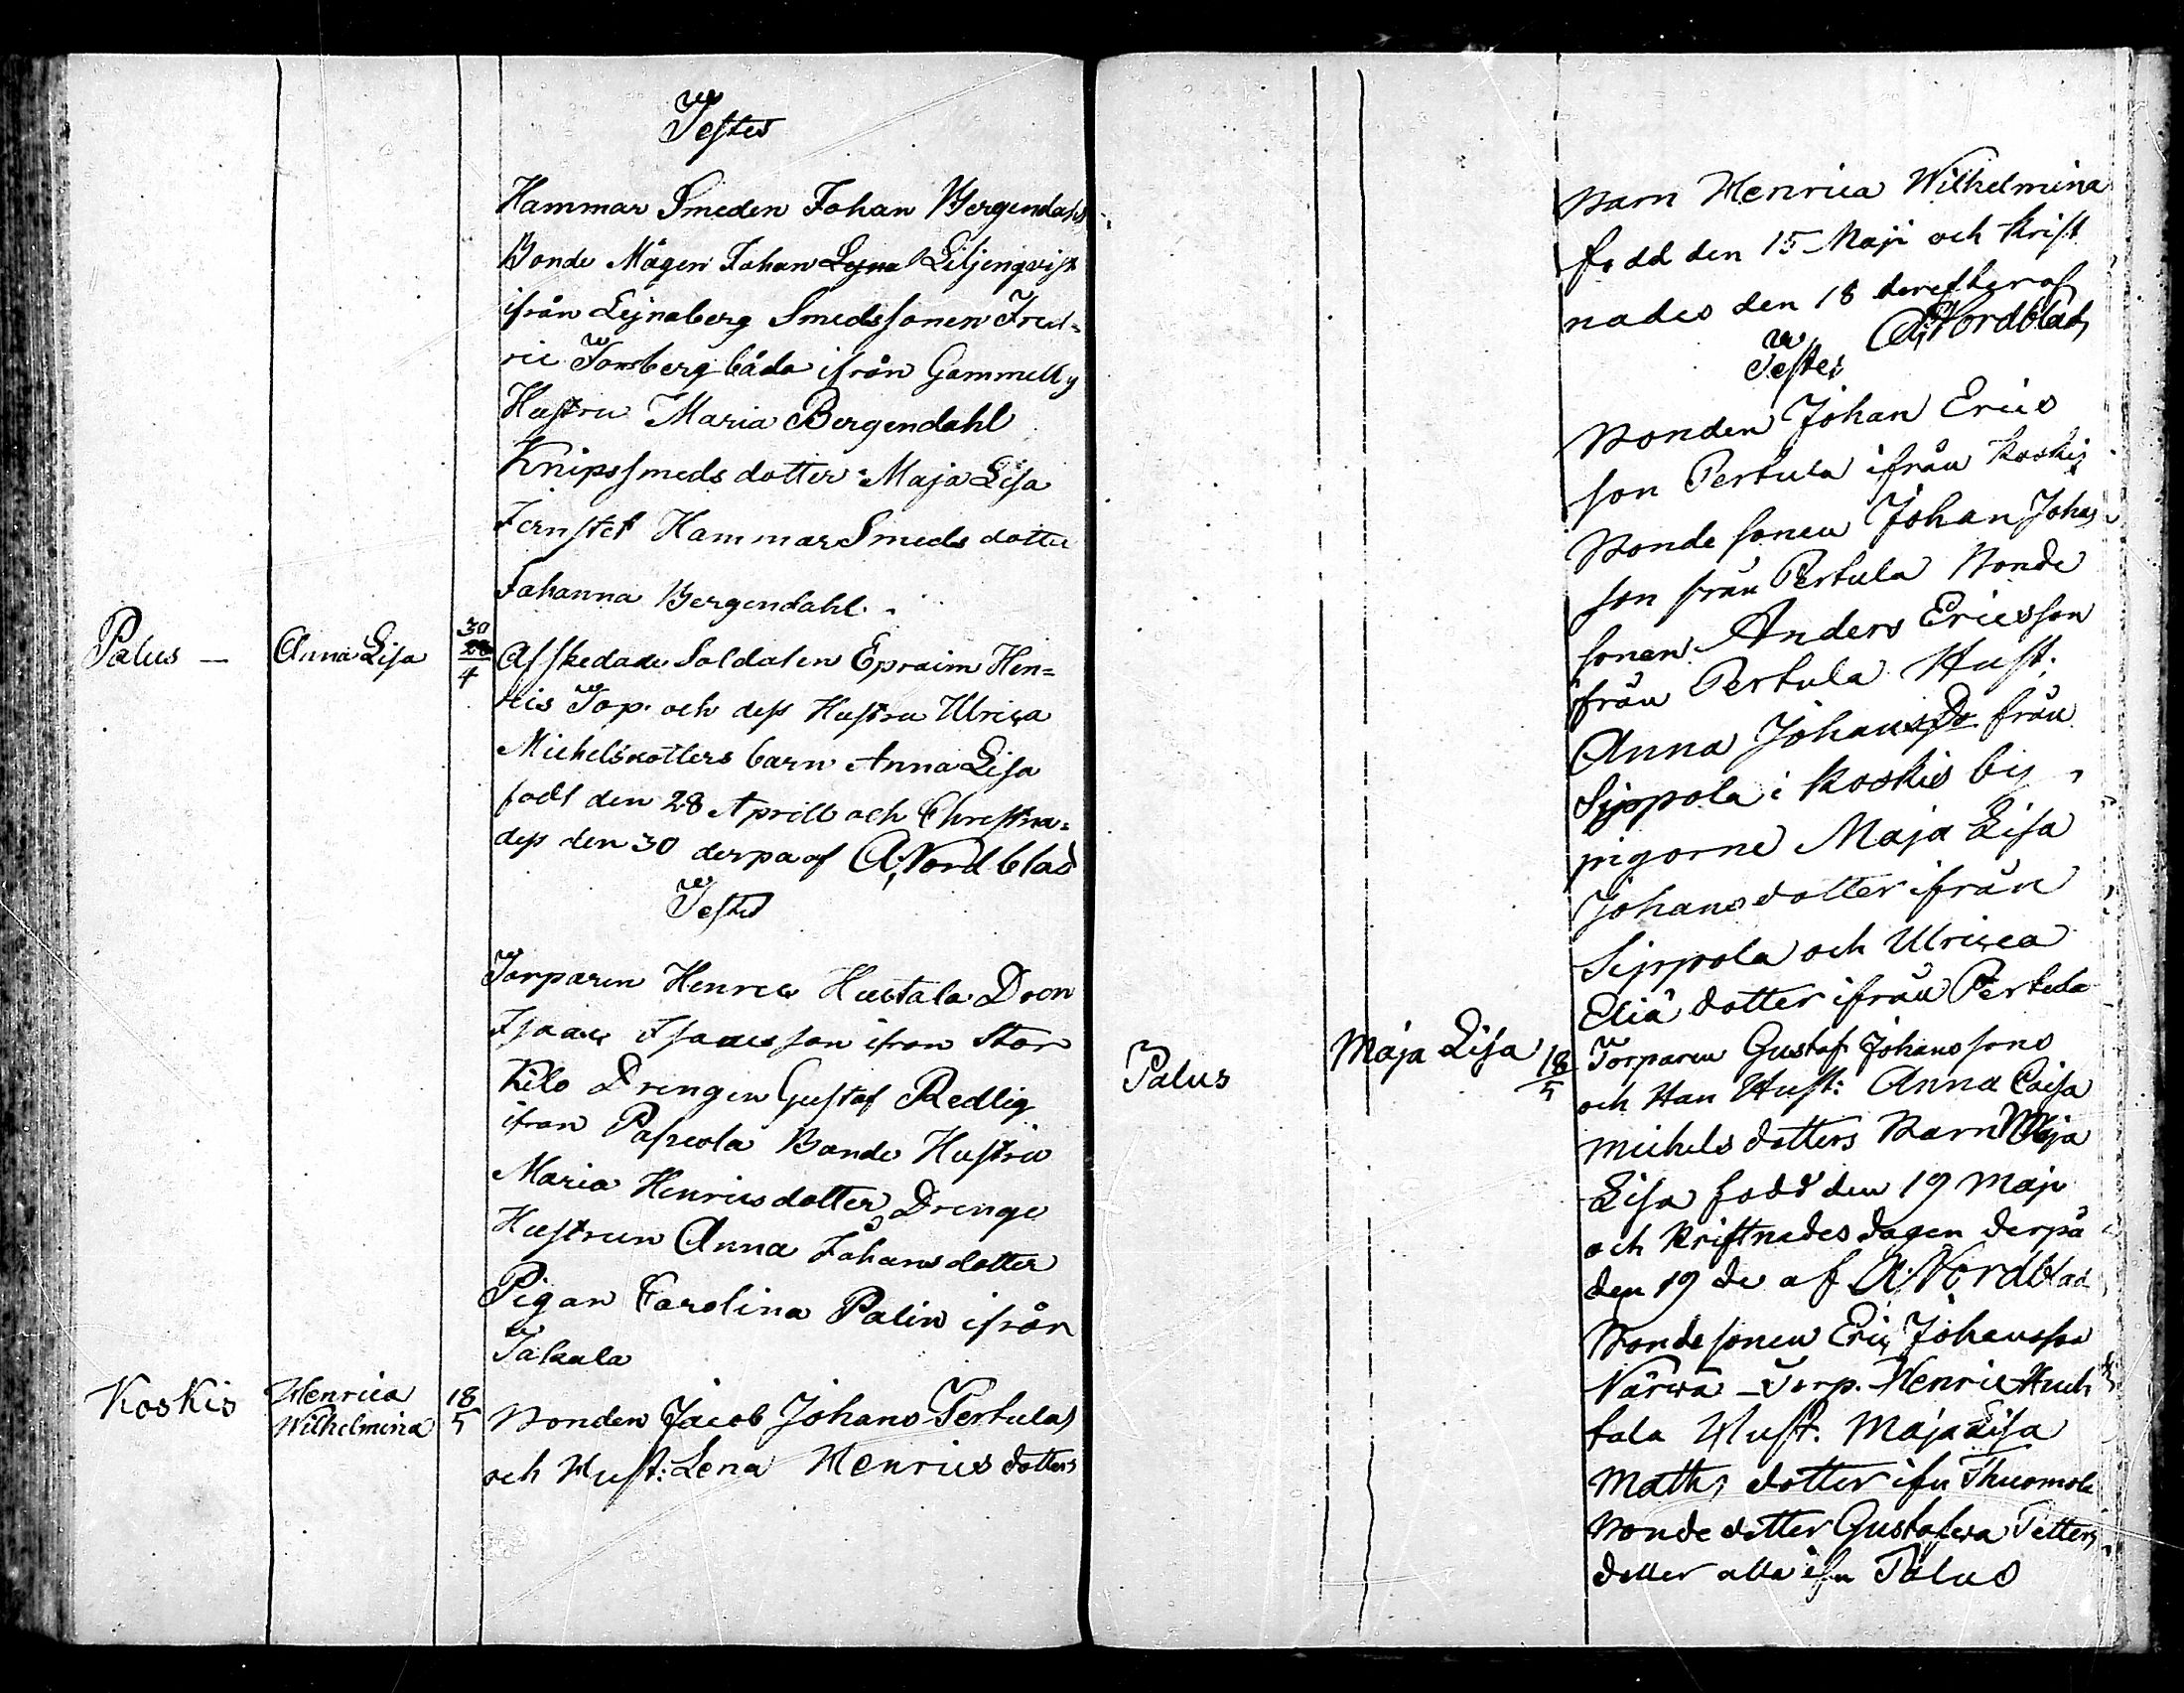 Testes
Hammar Smeden Johan Bergendahl
Bonde Mågen Johan Liljenqvist
ifrån Lejnaberg Smedssonen Fred=
ric Tornberg båda ifrån Gammelby
Hustru Maria Bergendahl
Knipssmeds dotter Maja Lisa
Fernsted Hammar Smeds dotter
Johanna Bergendahl.
Palus — Anna Lisa 30 28/4 Afskedade Soldaten Epraim Hen=
rics Torp. och dess Hustru Ulrica
Michelsdotters barn Anna Lisa
född den 28 Aprill och Christna=
des den 30 derpa af A: Nordblad
Testes
Torparen Henric Huctala Dren
Isaac Isaacsson ifron Stor
Kilo Drengen Gustaf Redlig
ifran Bonde Hustru
Maria Henricsdotter Drenge
Hustrun Anna Johansdotter
Pigan Carolina Palin ifrån
Takula
Koskis Henrica Wilhelmina 18/5 Bonden Jacob Johans Pertulas
och Hust: Lena Henrics dotters
Barn Henrica Wilhelmina
född den 15 Maji och Krist
nades den 18 derefter af
A: Nordblad
Testes
Bonden Johan Erics
son Pertula ifrån Koskis
Bonde sonen Johan Johas
son från Pertula Bonde
sonen Anders Ericsson
från Pertula Hust.
Anna Johans Do från
Sippola i Koskis by
pigorne Maja Lisa
Johansdotter ifrån
Sippola och Ulricca
Eliä dotter ifrån Pertula
Palus Maja Lisa 18/5 Torparen Gustaf Johanssons
och Han Hust: Anna Caisa
Michels dotters Barn Maja
Lisa född den 19 Maji
och Kristnades dagen derpå
den 19 de af A: Nordblad
Bondesonen Eric Johansson
Närwä — Torp. Henric Huch
tala Hust. Maja Lisa
Matths dotter ifn Thuomola
Bonde dotter Gustafwa Petters
dotter alla ifn Palus